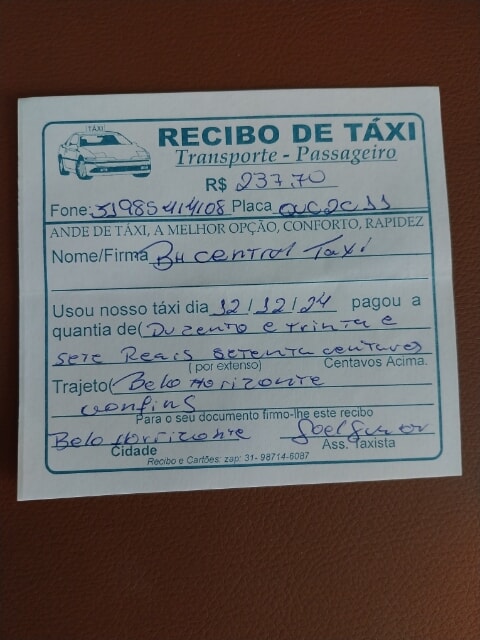 TÁXI
RECIBO DE TÁXI
Transporte - Passageiro
R$ 237,70
Fone: 31985414108 Placa
ANDE DE TÁXI, A MELHOR OPÇÃO, CONFORTO, RAPIDEZ
Nome/Firma BH central Taxi
Usou nosso táxi dia 12/12/24 pagou a
quantia de (Duzento e trinta e
sete Reais setenta centavos
(por extenso) Centavos Acima.
Trajeto (Belo Horizonte
confins
Para o seu documento firmo-lhe este recibo
Belo Horizonte
Cidade Ass. Taxista
Recibo e Cartões: zap: 31- 98714-6087